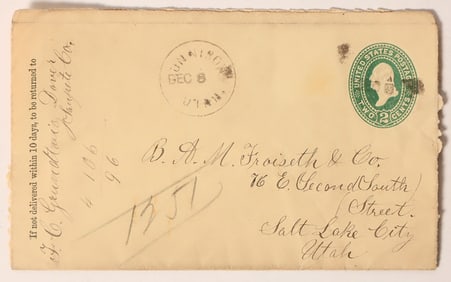 If not delivered within 10 days, to be returned to
106
96
GUNNISON
DEC 8
UTAH
UNITED STATES POSTAGE
2
TWO CENTS
B. A. M. Froiseth & Co.
76 E. Second South
Street.
Salt Lake City
Utah
1251